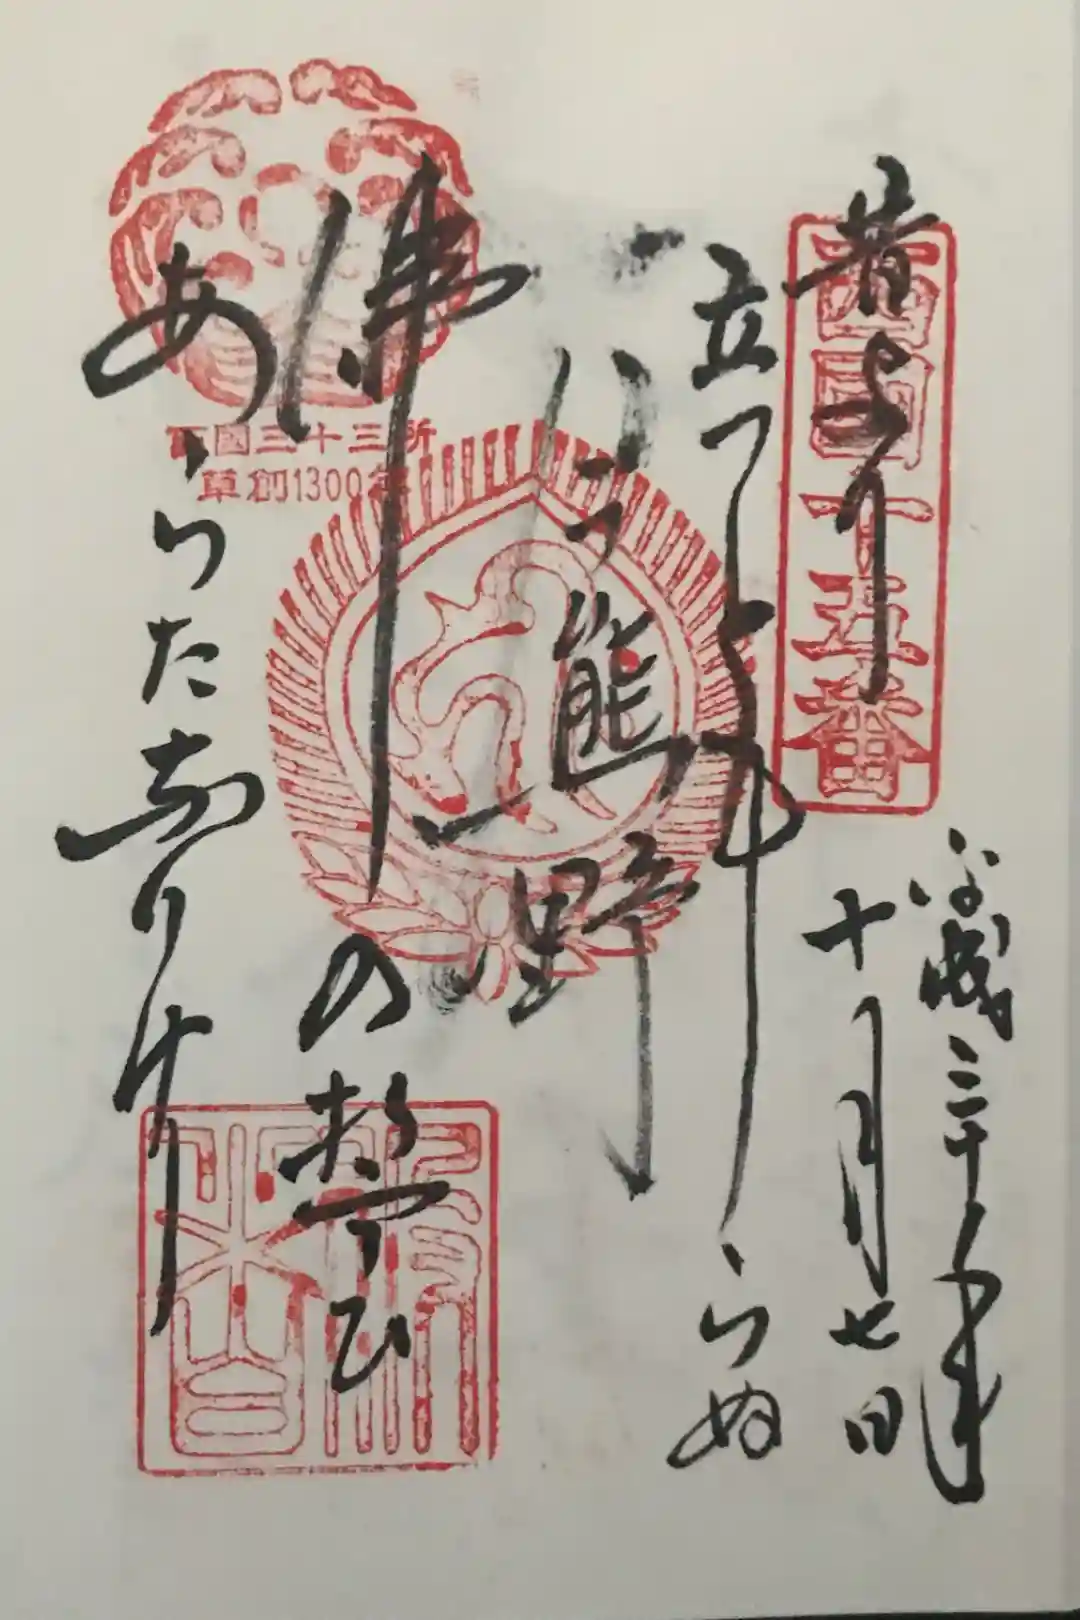 西國十五番
平成三十年
十月七日
昔より
立つともしらぬ
今熊野
佛の誓ひ
あらたなりけり
西國三十三所
草創1300年